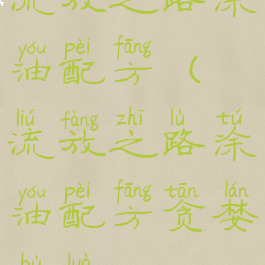 流放之路涂
yóu pèi fāng
油配方（
liú fàng zhī lù tú
流放之路涂
yóu pèi fāng tān lán
油配方贪婪
bù luò